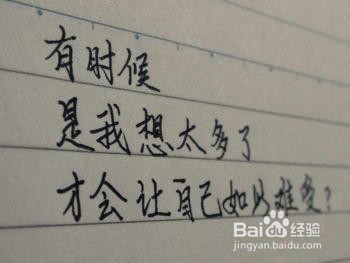 有时候
是我想太多了
才会让自己如此难受？
Baidu经验
jingyan.baidu.com